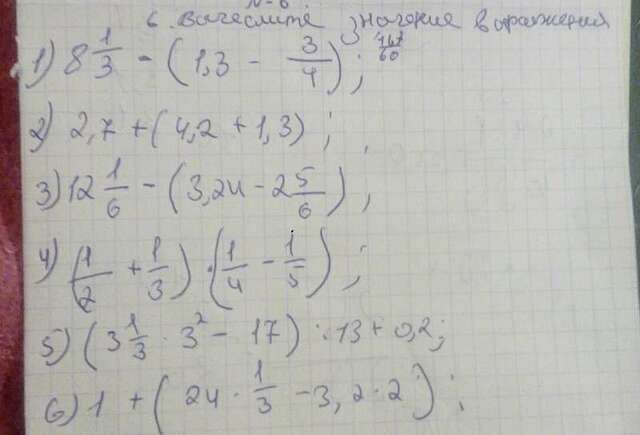 №6
6. Вычеслите значение выражения
1) 8 1/3 - (1,3 - 3/4); 467/60
2) 2,7 + (4,2 + 1,3);
3) 12 1/6 - (3,24 - 2 5/6);
4) (1/2 + 1/3) · (1/4 - 1/5);
5) (3 1/3 · 3² - 17) : 13 + 0,2;
6) 1 + (24 · 1/3 - 3,2 · 2);